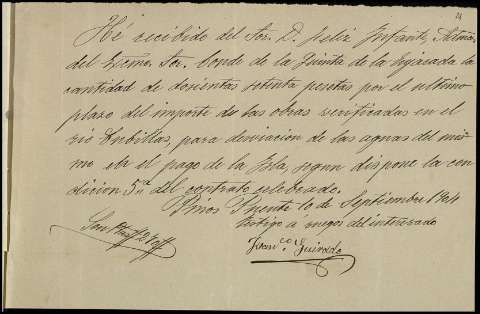 He recibido del Sor. D. Felix Infante, Admor.
del Excmo. Sor. Conde de la Quinta de la Enjarada la
cantidad de doscientas setenta pesetas por el ultimo
plazo del importe de las obras verificadas en el
rio Cubillas, para desviacion de las aguas del mis
mo en el pago de la Isla, segun dispone la con
dicion 5ª del contrato celebrado.
Pinos Puente 10 de Septiembre
Testigo á ruegos del interesado
Franco. Guirado